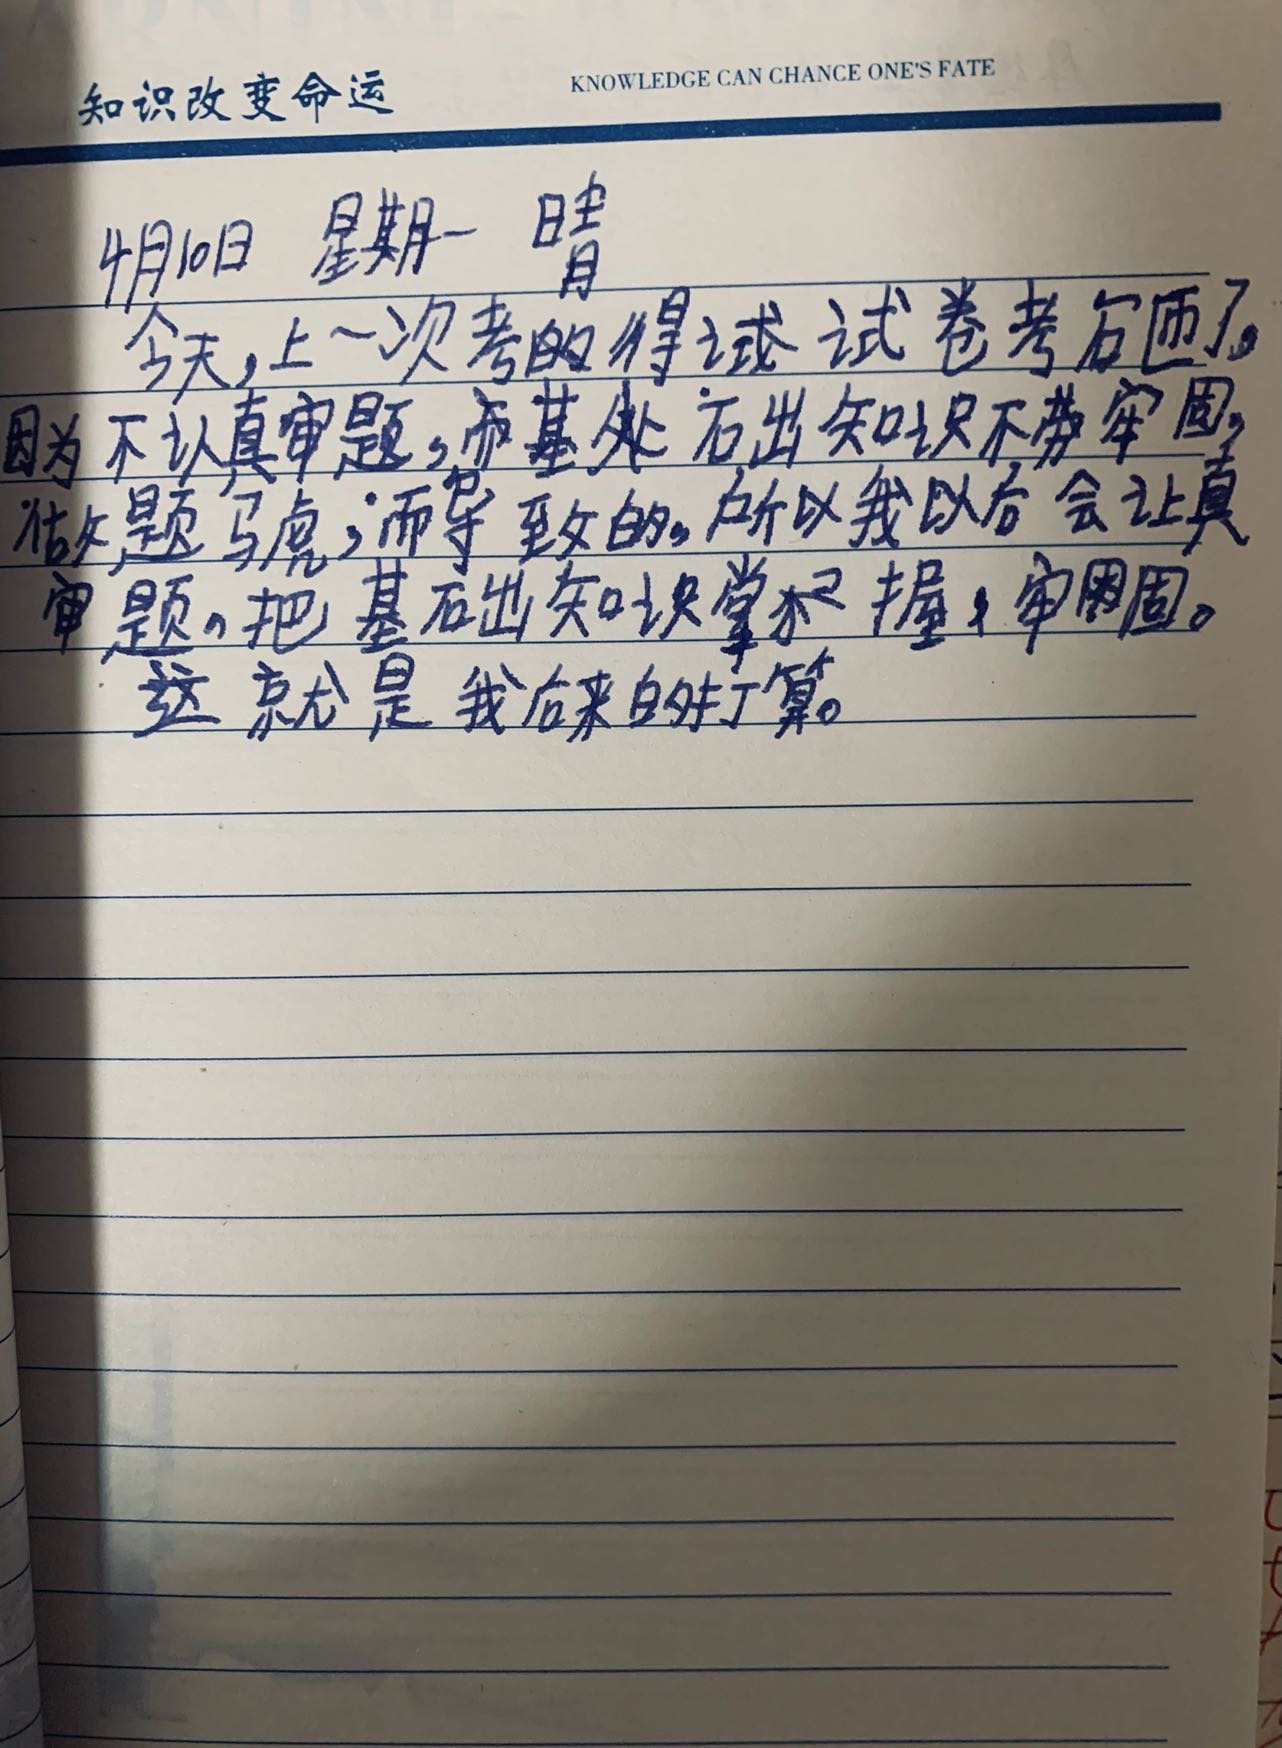 知识改变命运
KNOWLEDGE CAN CHANCE ONE'S FATE
4月10日 星期一 晴
今天,上一次考的得试试卷考石匝了。
因为不认真审题,而基处石出知识不劳牢固,
做题马虎,而导致的。所以我以后会让真
审题。把基础知识掌握,牢固。
这就是我后来的打算。